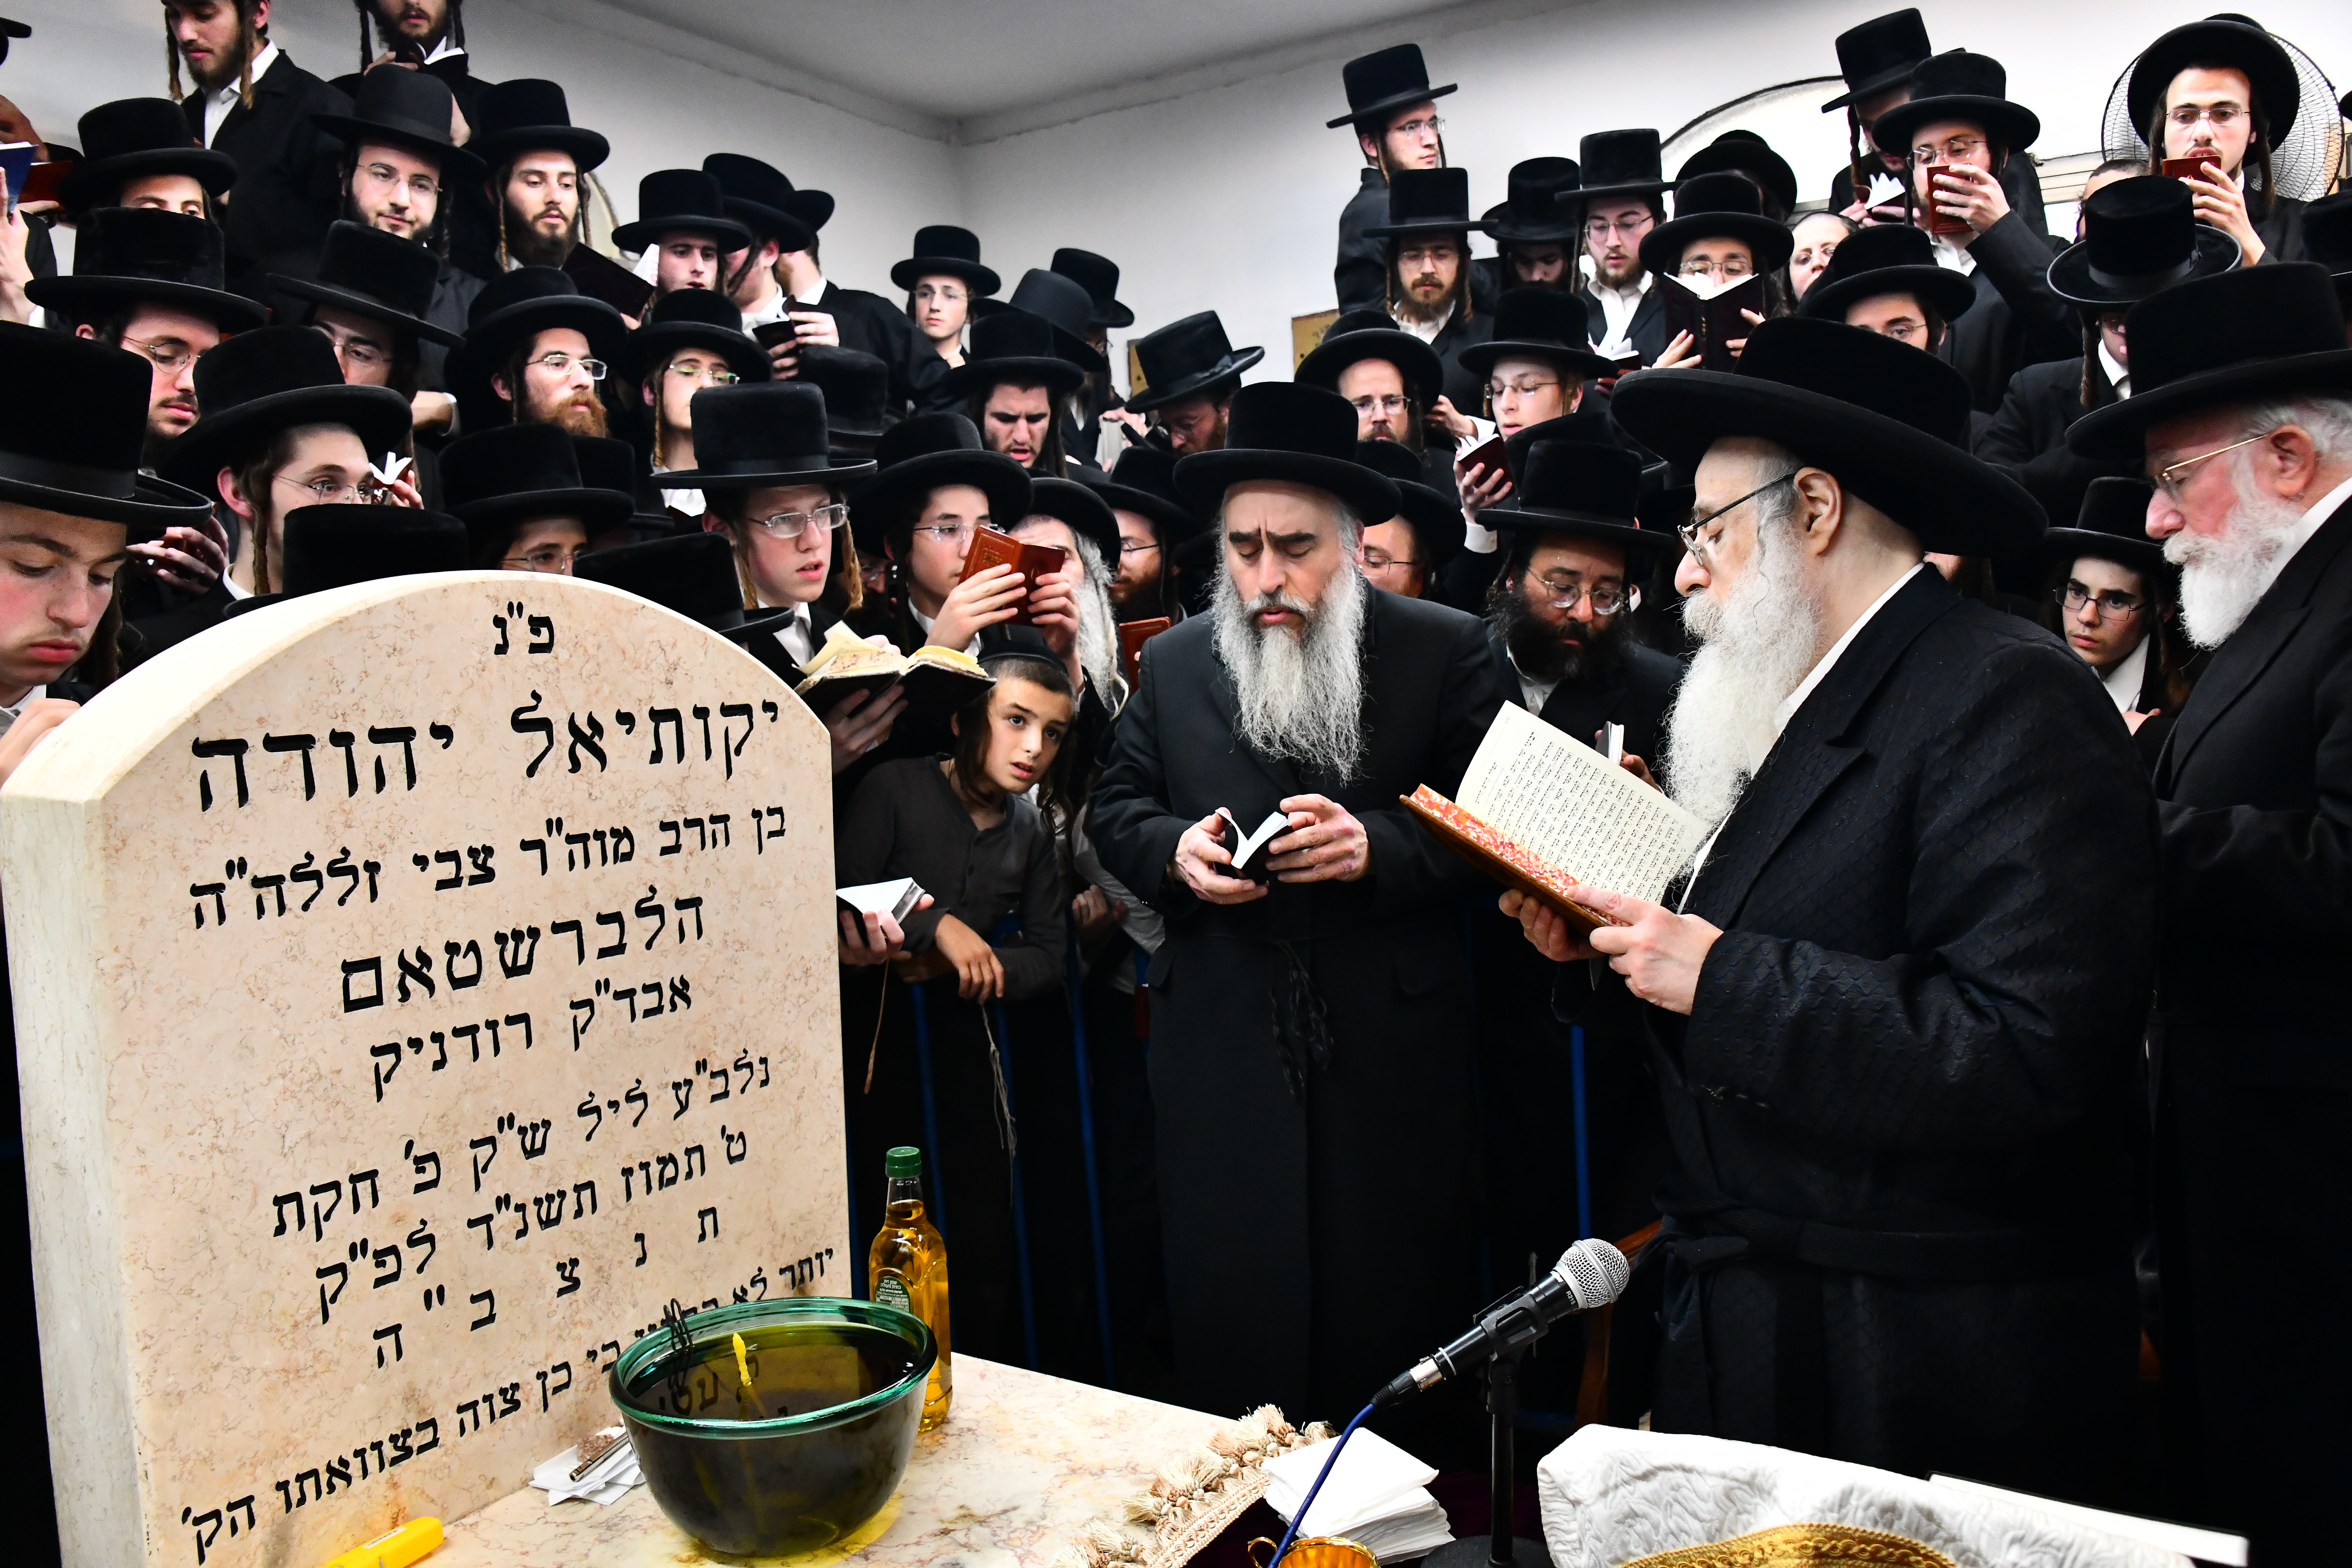 פ"נ
יקותיאל יהודה
בן הרב מוה"ר צבי זללה"ה
הלברשטאם
אבד"ק רודניק
נלב"ע ליל ש"ק פ' חקת
ט' תמוז תשנ"ד לפ"ק
ת נ צ ב "ה
יותר לא
כי כן צוה בצוואתו הק'